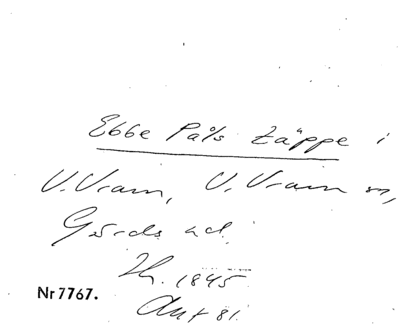 Ebbe Påls täppe i
V. Vram, V. Vram sn,
Gärds hd.
Th. 1845
Nr 7767.
Ant 81.